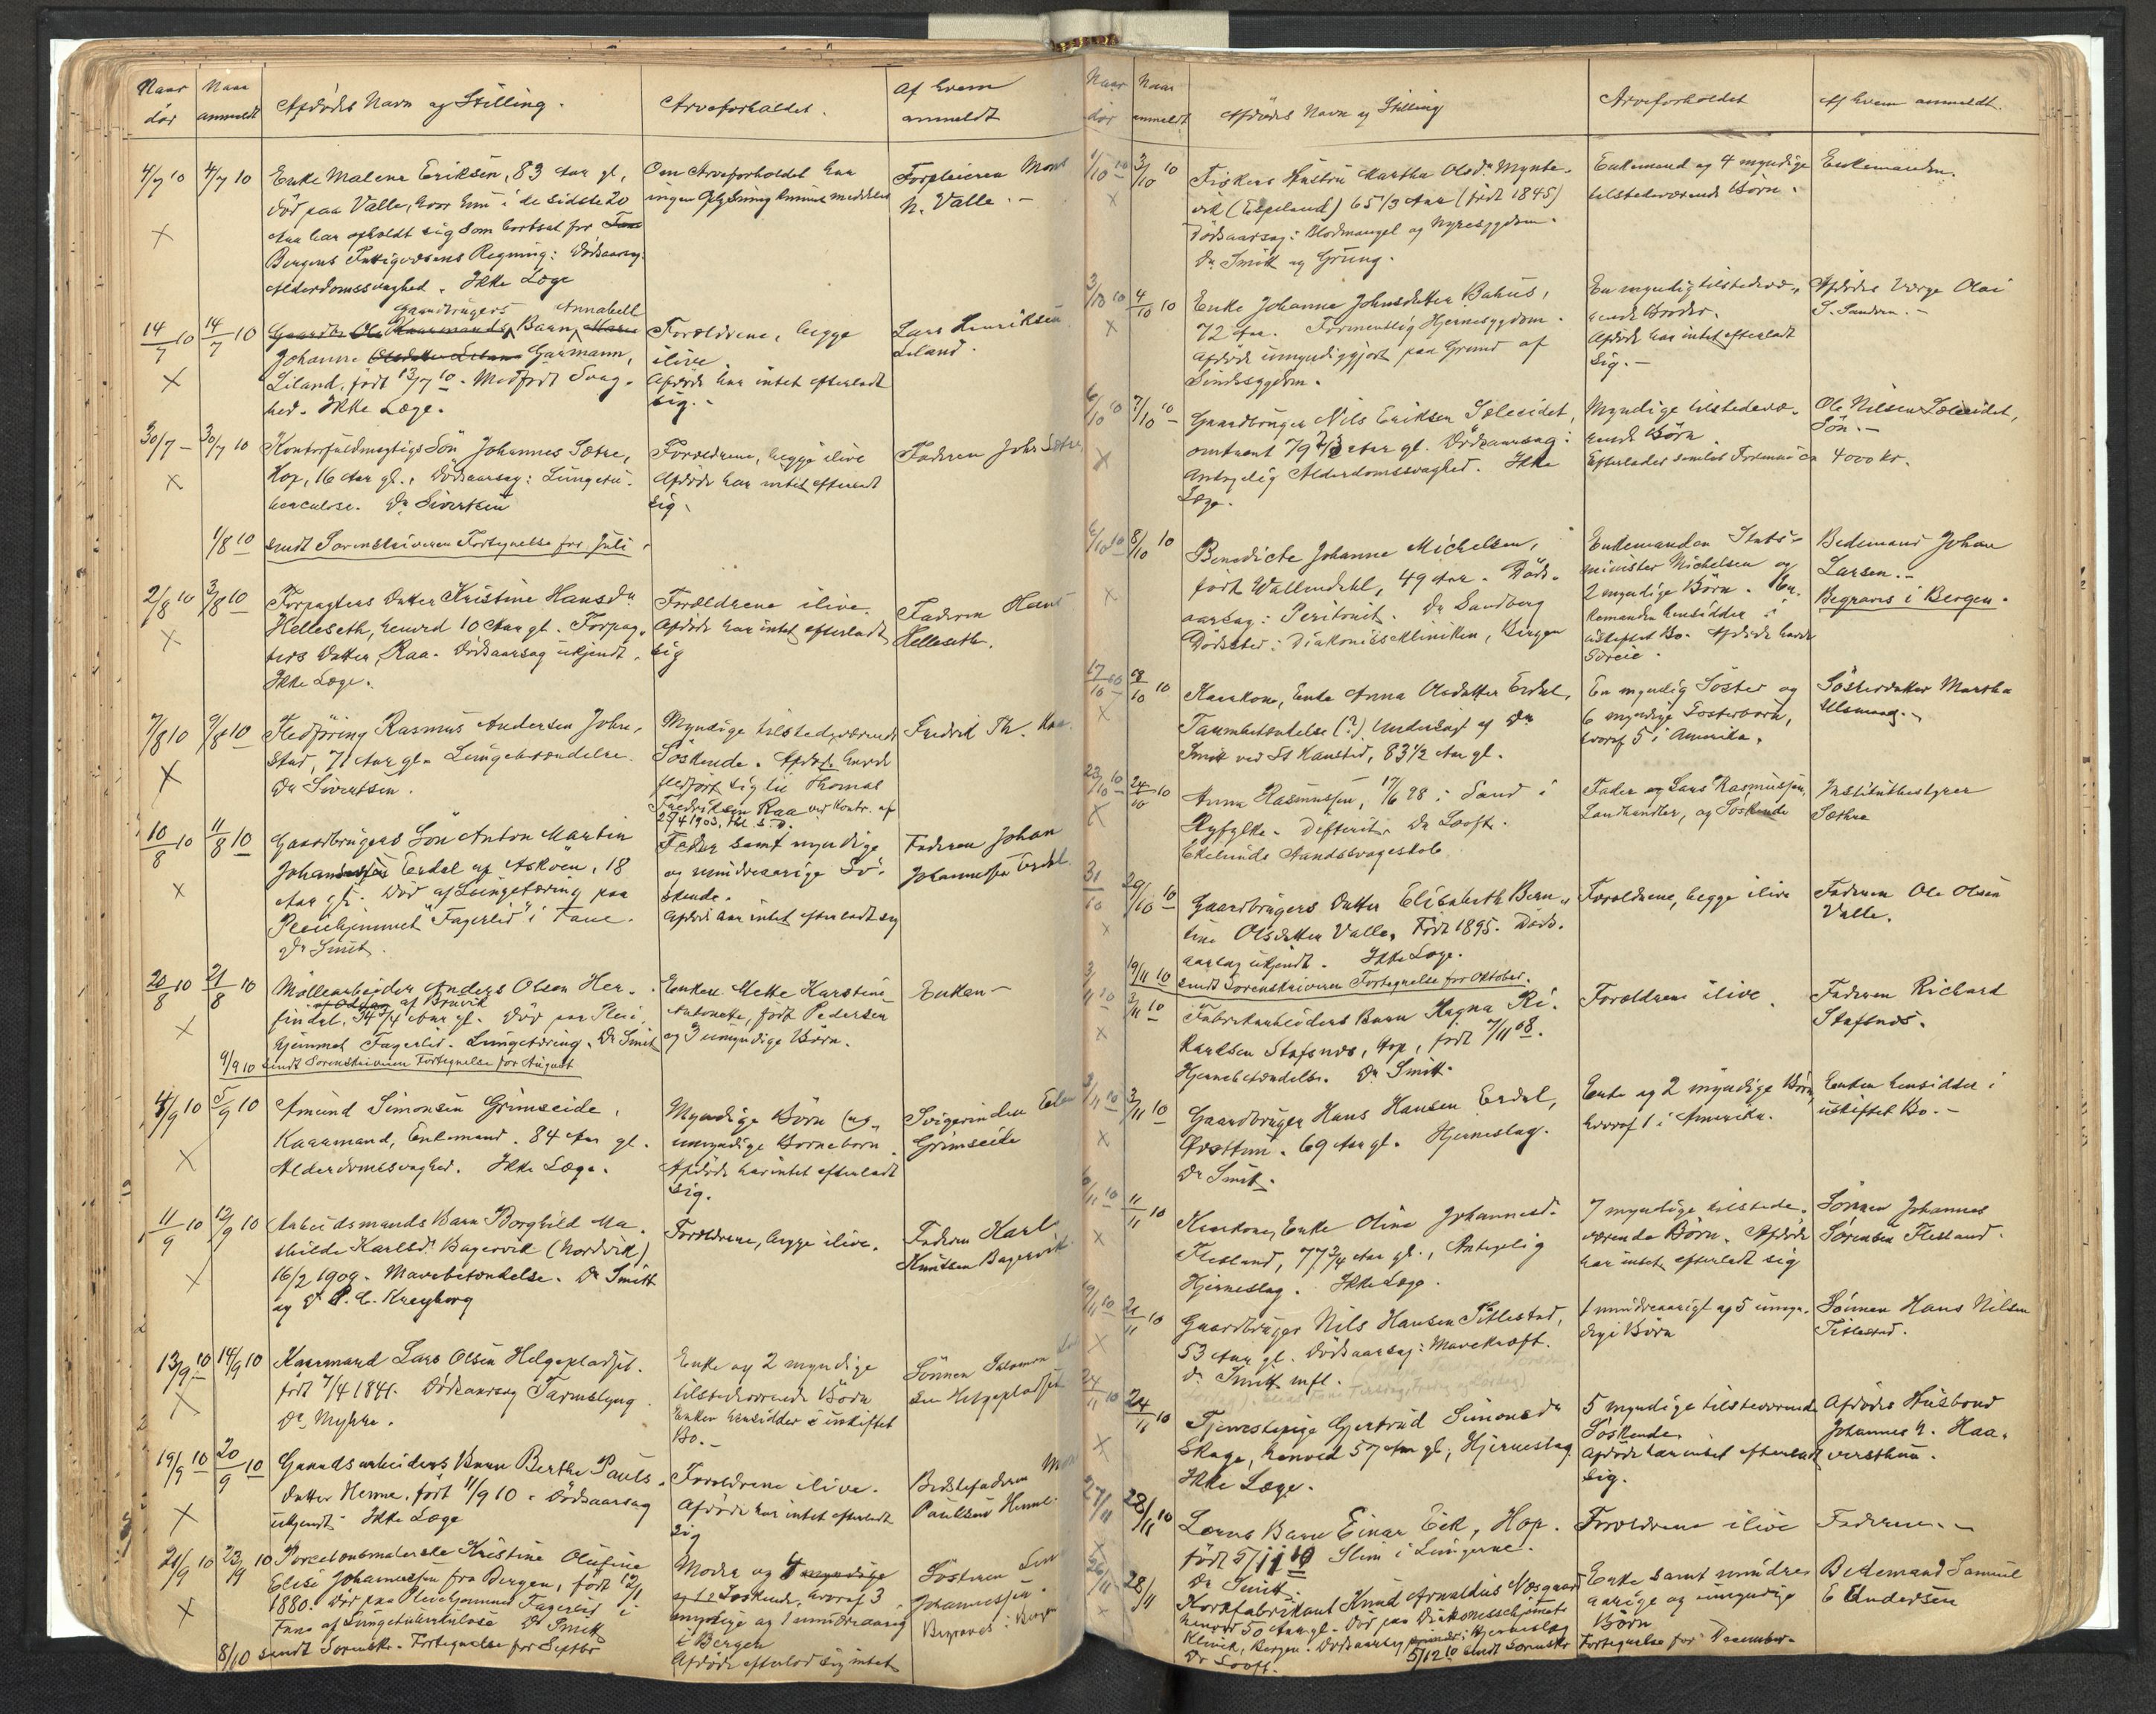 Naar Naar Afdødes Navn og Stilling. Arveforholdet. Af hvem
dør anmeldt anmeldt
4/7 10 4/7 10 Enke Malene Eriksen, 83 Aar gl., Om Arveforholdet har Forpleieren Mons
død paa Valle, hvor hun i de sidste 20 ingen Oplysning kunnet meddeles N. Valle. -
Aar har opholdt sig som bortsat for
Bergens Fattigvæsens Regning: Dødsaarsag:
Alderdomssvaghed. Ikke Læge
Gaardbrugers Annabell
14/7 10 14/7 10 Barn Forældrene, begge Lars Henriksen
Johanne Garmann, ilive Liland.
Liland, født 13/7 10. Medfødt Svag- Afdøde har intet efterladt
hed. Ikke Læge. sig. -
30/7 - 30/7 10 Kontorfuldmægtigs Søn Johannes Sætre, Forældrene, begge ilive Faderen Johs Sætre
Hop, 16 Aar gl., Dødsaarsag: Lungetu- Afdøde har intet efterladt
berculose. Dr Sivertsen sig.
1/8 10 sendt Sorenskriveren Fortegnelse for Juli.
2/8 10 3/8 10 Forpagters Datter Kristine Hansdr Forældrene ilive. Faderen Hans
Helleseth, henved 10 Aar gl. Forpag- Afdøde har intet efterladt Helleseth.
ters Datter, Raa. Dødsaarsag ukjendt. sig
Ikke Læge.
7/8 10 9/8 10 Fledføring Rasmus Andersen John- Myndige tilstedeværende Fredrik Th. Raa
stad, 71 Aar gl. Lungebetændelse. Søskende. Afdøde havde
Dr Sivertsen. fledført sig til Thomas
Fredriksen Raa ved Kontr. af
25/4 1903, thl. s. D.
10/8 10 11/8 10 Gaardbrugers Søn Anton Martin Fader samt myndige Faderen Johan
Erdal af Askøen, 18 og mindreaarige Sø- Johannessen Erdal
Aar gl. Død af Lungetæring paa skende.
Pleiehjemmet "Fagerlid" i Fane. Afdøde har intet efterladt sig
Dr Smitt.
20/8 10 21/8 10 Møllearbeider Anders Olsen Her- Enken Mette Karstine Enken -
af Bruvik
findal, 34 3/4 Aar gl. Død paa Pleie- Antonette, født Pedersen
hjemmet Fagerlid. Lungetæring. Dr Smitt og 3 umyndige Børn.
9/9 10 sendt Sorenskriveren Fortegnelse for August
4/9 10 5/9 10 Amund Simonsen Grimseide, Myndige Børn og Svigerinden
Kaarmand, Enkemand. 84 Aar gl. umyndige Børnebørn. Grimseide
Alderdomssvaghed. Ikke Læge. Afdøde har intet efterladt
sig.
11/9 10 12/9 10 Arbeidsmands Barn Borghild Ma- Forældrene, begge ilive. Faderen Karl
thilde Karlsdr Bagervik (Nordvik) Knutsen Bagervik
16/2 1909. Mavebetændelse. Dr Smitt
og Dr P. C. Kreyberg
13/9 10 14/9 10 Kaarmand Lars Olsen Helgepladset. Enke og 2 myndige Sønnen Salomon
født 7/4 1841. Dødsaarsag Tarmslyng. tilstedeværende Børn Helgepladset
Dr Myhre. Enken hensidder i uskiftet
Bo. -
19/9 10 20/9 10 Gaardsarbeiders Barn Berthe Pauls- Forældrene ilive. Bedstefaderen
datter Henne, født 11/9 10. Dødsaarsag Afdøde har intet efterladt Paulsen Henne.
ukjendt. Ikke Læge sig
21/9 10 23/9 10 Porcelænsmalerske Kristine Olufine Moder og Søsteren
Elise Johannessen fra Bergen, født 12/1 Søskende, hvoraf 3 Johannessen.
1880. Død paa Pleiehjemmet Fagerlid i myndige og 1 mindreaarig Begraves i Bergen
Fana af Lungetuberkulose Dr Smitt i Bergen
8/10 sendt Sorenskr. Fortegnelse for Septbr Afdøde efterlod sig intet
Naar Naar Afdødes Navn og Stilling Arveforholdet Af hvem anmeldt.
dør anmeldt
1/10 10 3/10 10 Fiskers Hustru Martha Olsdr Mynte- Enkemand og 4 myndige Enkemanden.
vik (Espeland) 65 1/3 Aar (født 1845) tilstedeværende Børn.
Dødsaarsag: Blodmangel og Nyresygdom.
Dr Smitt og Grung.
3/10 10 4/10 10 Enke Johanne Johnsdatter Bahus, En myndig tilstedevæ- Afdødes Værge Olai
72 Aar. Formentlig Hjernesygdom. rende Broder. S. Sanden. -
Afdøde umyndiggjort paa Grund af Afdøde har intet efterladt
Sindssygdom. sig. -
6/10 10 7/10 10 Gaardbruger Nils Eriksen Sælesidet, Myndige tilstedevæ- Ole Nilsen Sælesidet,
omtrent 79 2/3 Aar gl. Dødsaarsag: rende Børn. Søn. -
Antagelig Alderdomssvaghed. Ikke Efterlader samlet Formue ca 4000 kr.
Læge.
6/10 10 8/10 10 Benedicte Johanne Michelsen, Enkemanden Stats- Bedemand Johan
født Wallendahl, 49 Aar. Døds- minister Michelsen og Larsen. -
aarsag: Peritonit. Dr Sandberg 2 myndige Børn. En- Begraves i Bergen.
Dødssted: Diakonisseklinikken, Bergen kemanden hensidder i
uskiftet Bo. Afdøde havde
Særeie.
17/10 10 18/10 10 Kaarkone, Enke Anna Olsdatter Erdal, En myndig Søster og Søsterdatter Martha
Tarmbetændelse (?) Undersøgt af Dr 6 myndige Søsterbørn, Ulsmaag. -
Smitt ved St Hanstid, 83 1/2 Aar gl. hvoraf 5 i Amerika.
23/10 10 24/10 10 Anna Rasmussen, 17/6 98 i Sand i Fader Lars Rasmussen, Institutbestyrer
Ryfylke. Difterit. Dr Looft. Landhandler, og Søskende Sæthre
Ekelunds Aandssvageskole
29/10 10 Gaardbrugers Datter Elisabeth Bern- Forældrene, begge ilive Faderen Ole Olsen
tine Olsdatter Valle, Født 1895. Døds- Valle.
aarsag ukjendt. Ikke Læge.
sendt Sorenskriveren Fortegnelse for Oktober.
3/11 10 Fabrikarbeiders Barn Magna Ri- Forældrene ilive. Faderen Richard
kardsen Stafsnæs, Hop, født 7/11 08. Stafsnæs.
Hjernebetændelse. Dr Smitt.
3/11 10 Gaardbruger Hans Hansen Erdal, Enke og 2 myndige Børn, Enken hensidder i
Øvsttun. 69 Aar gl. Hjerneslag. hvoraf 1 i Amerika. uskiftet Bo. -
Dr Smitt.
11/11 10 Kaarkone, Enke Oline Johannesd. 7 myndige tilstede- Sønnen Johannes
Flesland, 77 3/4 Aar gl., Antagelig værende Børn. Afdøde Sørensen Flesland.
Hjerneslag. Ikke Læge. har intet efterladt sig
21/11 10 Gaardbruger Nils Hansen Titlestad, 1 mindreaarigt og 5 umyn- Sønnen Hans Nilsen
53 Aar gl. Dødsaarsag: Mavekræft. dige Børn Titlestad.
Dr. Smitt mfl.
24/11 10 24/11 10 Tjenestepige Gjertrud Simonsdr 5 myndige tilstedeværende Afdødes Husbond
Skage, henved 57 Aar gl., Hjerneslag Søskende. Johannes N. Haa-
Ikke Læge. Afdøde har intet efterladt versthun.
sig.
27/11 28/11 10 Barn Einar Eik, Hop. Forældrene ilive Faderen. -
født Slim i Lungerne.
Dr Smitt.
26/11 28/11 Korkfabrikant Knud Arnoldus Næsgaard Enke samt mindre- Bedemand Samuel
henved 50 Aar gl. Død paa Diakonissehjemmets aarige og umyndige E Andersen
Klinik, Bergen. Dødsaarsag Hjerneslag Børn
Dr Looft. 5/12 10 sendt Sorenskr Fortegnelse for December.